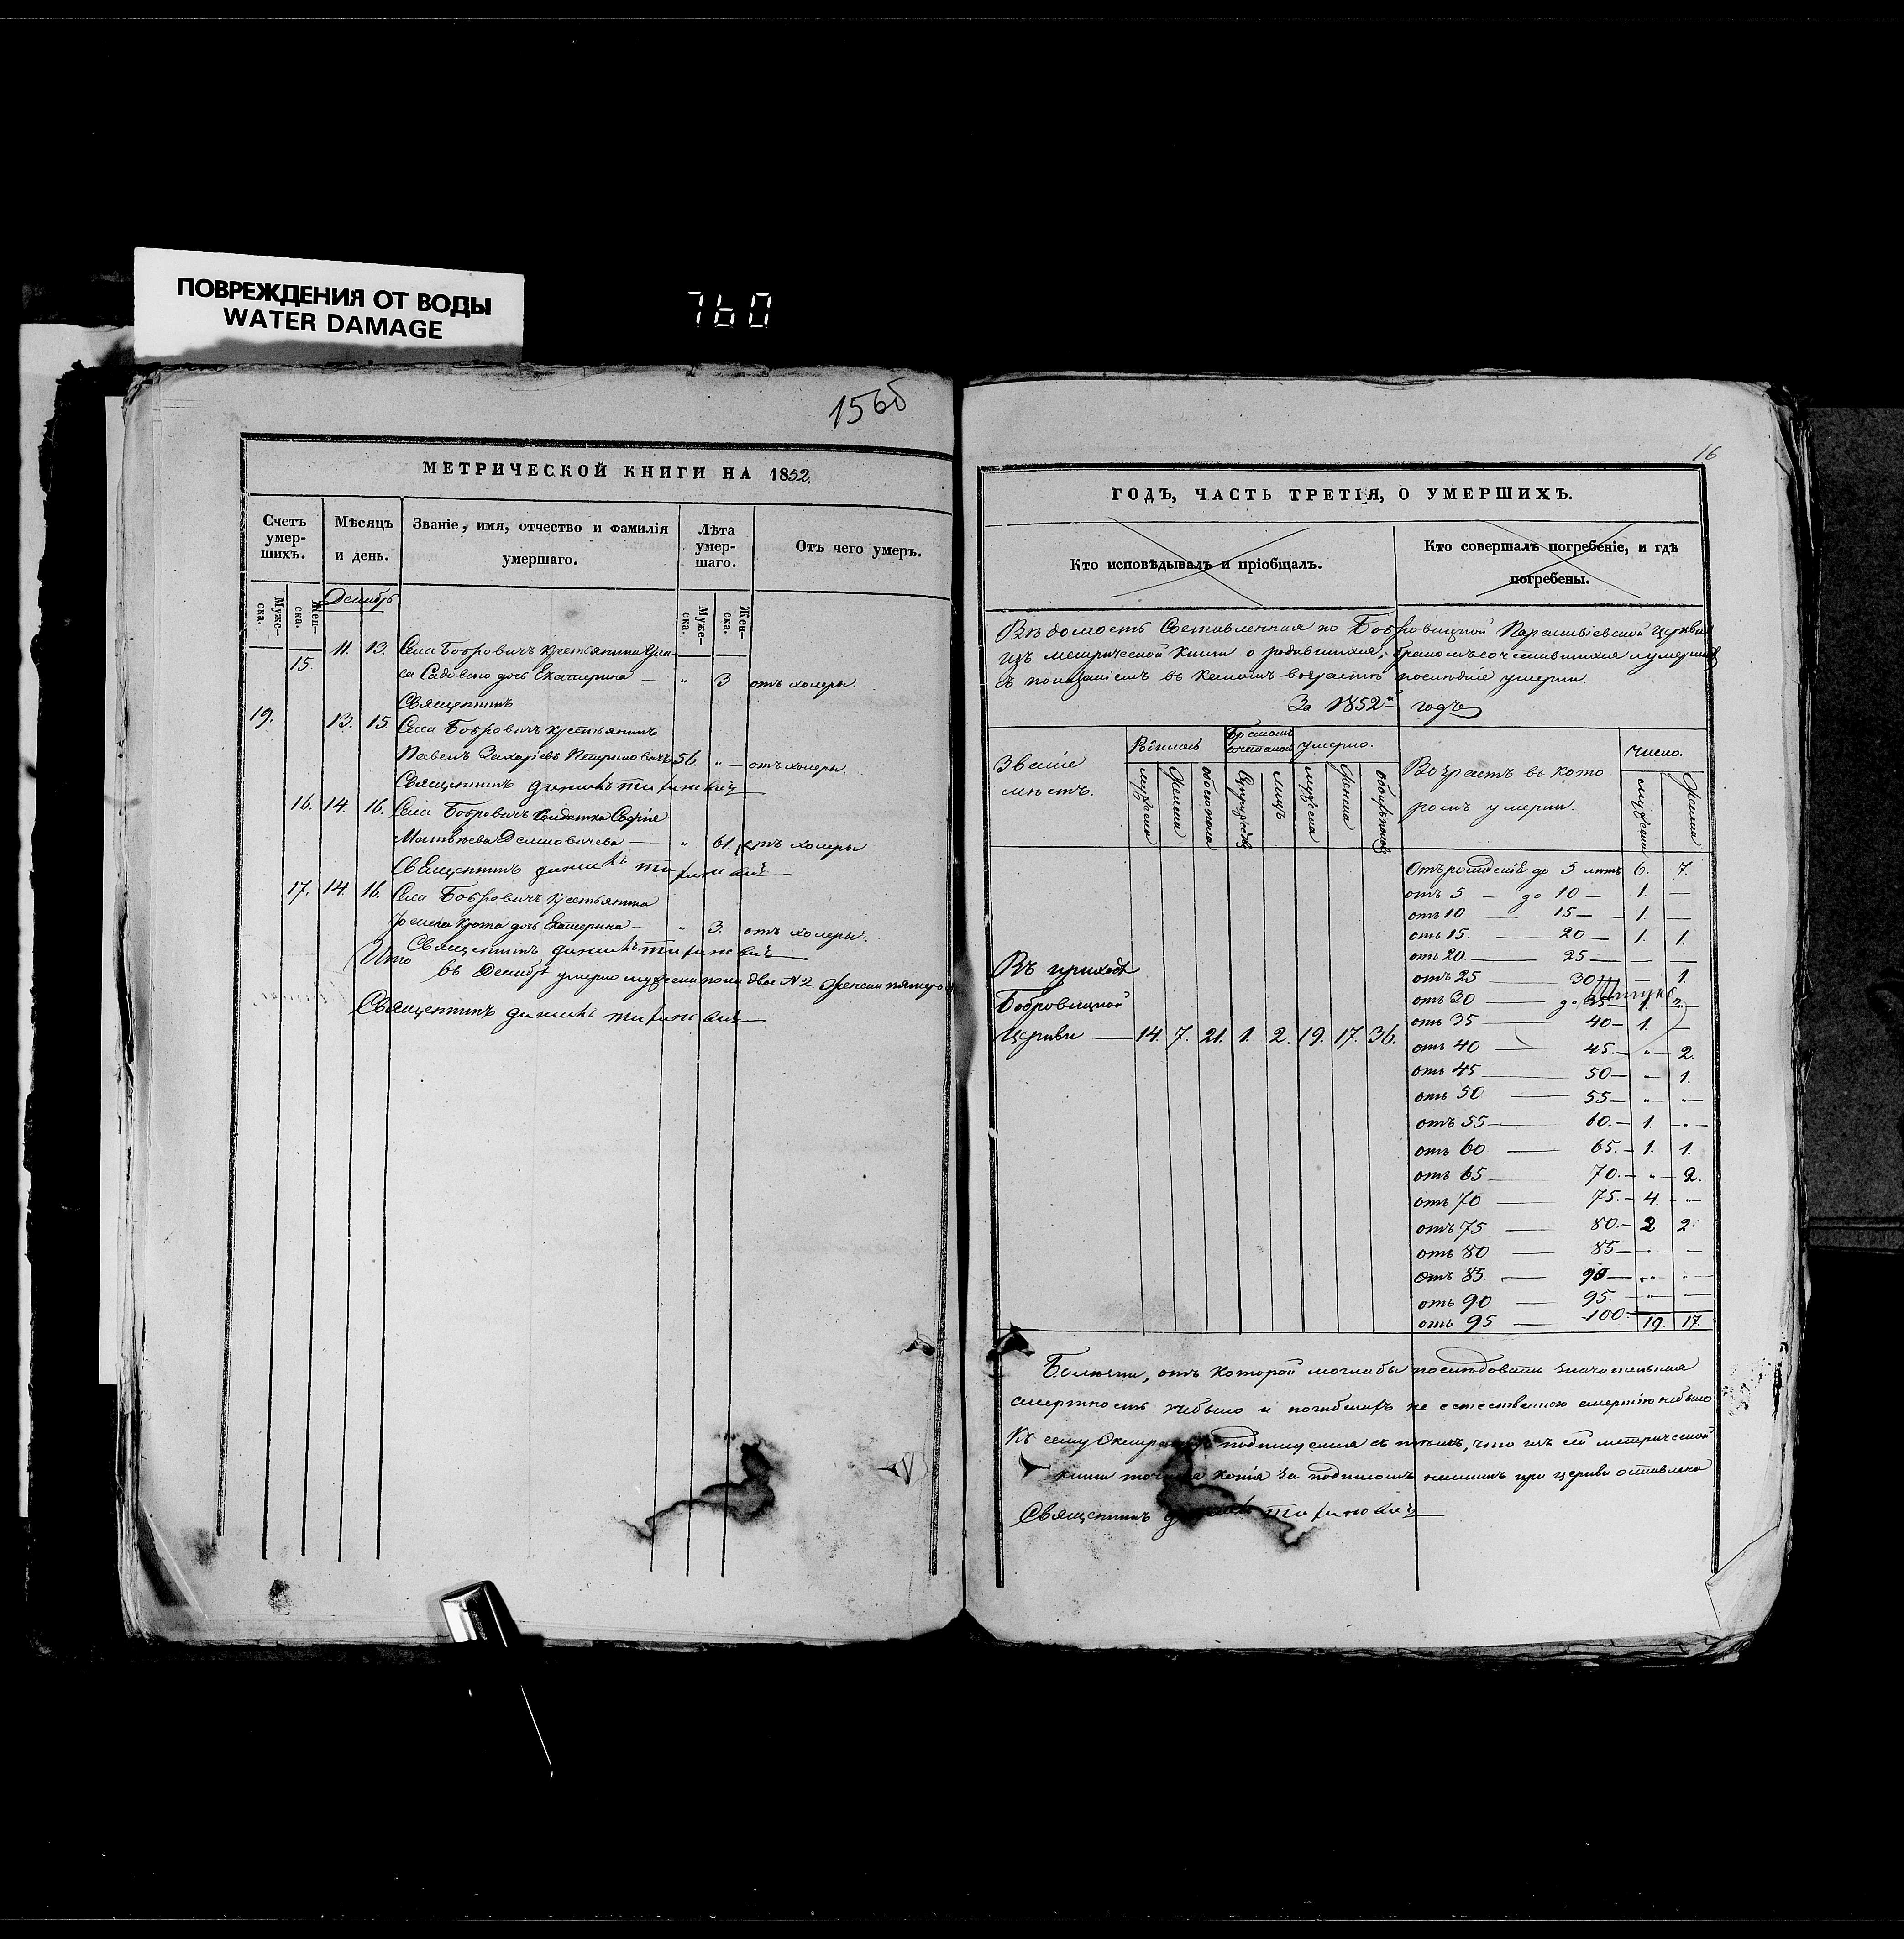 ПОВРЕЖДЕНИЯ ОТ ВОДЫ
WATER DAMAGE
760
15об
МЕТРИЧЕСКОЙ КНИГИ НА 1852.
Счетъ умер-шихъ.
Мѣсяцъ и день.
Званіе, имя, отчество и фамилія умершаго.
Лѣта умер-шаго.
Отъ чего умеръ.
Муже-ска.
Жен-ска.
Декабрь
Муже-ска.
Жен-ска.
15. 11. 13. Села Бобровичъ крестьянина
Садоваго дочь Екатерина — " 3 отъ холеры.
Священникъ
19. 13. 15. Села Бобровичъ крестьянинъ
Павелъ Захаріевъ 56. " — отъ холеры.
Священникъ
16. 14. 16. Села Бобровичъ Солдатка Софія
Матвѣева — " 61. отъ холеры
Священникъ
17. 14. 16. Села Бобровичъ крестьянина
дочь Екатерина — " 3. отъ холеры.
Священникъ
въ Декабрѣ умерло мужеска пола двое № 2. женска пятеро
Священникъ
16
ГОДЪ, ЧАСТЬ ТРЕТІЯ, О УМЕРШИХЪ.
Кто исповѣдывалъ и пріобщалъ.
Кто совершалъ погребеніе, и гдѣ погребены.
Вѣдомость Составленная по Бобровицкой Параскевіевской Церкви
изъ метрической книги о родившихся, бракомъ сочетавшихся и умершихъ
съ показаніемъ въ какомъ возрастѣ послѣдніе умерли.
За 1852-й годъ
Званіе мѣстъ.
умерло.
мужеска
женска
обоего пола
Супружествъ
лицъ
мужеска
женска
Возрастъ въ кото
ромъ умерли.
Число.
мужеска
женска
Въ приходѣ
Бобровицкой
Церкви — 14. 7. 21. 1. 2. 19. 17. 36.
Отъ рожденія до 5 лѣтъ 6. 7.
отъ 5 — до 10 — 1. —
отъ 10 — 15 — 1. —
отъ 15. — 20 — 1. 1.
отъ 20. — 25 — — —
отъ 25 — 30 — 1.
отъ 30 — до 35 — 1. "
отъ 35 — 40 — 1. —
отъ 40 — 45. — " — 2.
отъ 45 — 50 — " 1.
отъ 50 — 55 — " — " —
отъ 55 — 60. — 1. — " —
отъ 60 — 65. — 1. 1.
отъ 65 — 70. — " — 2.
отъ 70 — 75. — 4. — " —
отъ 75 — 80. — 2 2.
отъ 80 — 85 — " — —
отъ 85. — 90 — " — " —
отъ 90 — 95. — " — —
отъ 95 — 100. 19. 17.
Болѣзни, отъ которой могла бы послѣдовать значительная
смертность небыло и погибшихъ не естественною смертію небыло
Къ сему подпишуемся съ тѣмъ, что изъ сей метрической
книги копія за подписомъ нашимъ при церкви оставлена
Священникъ